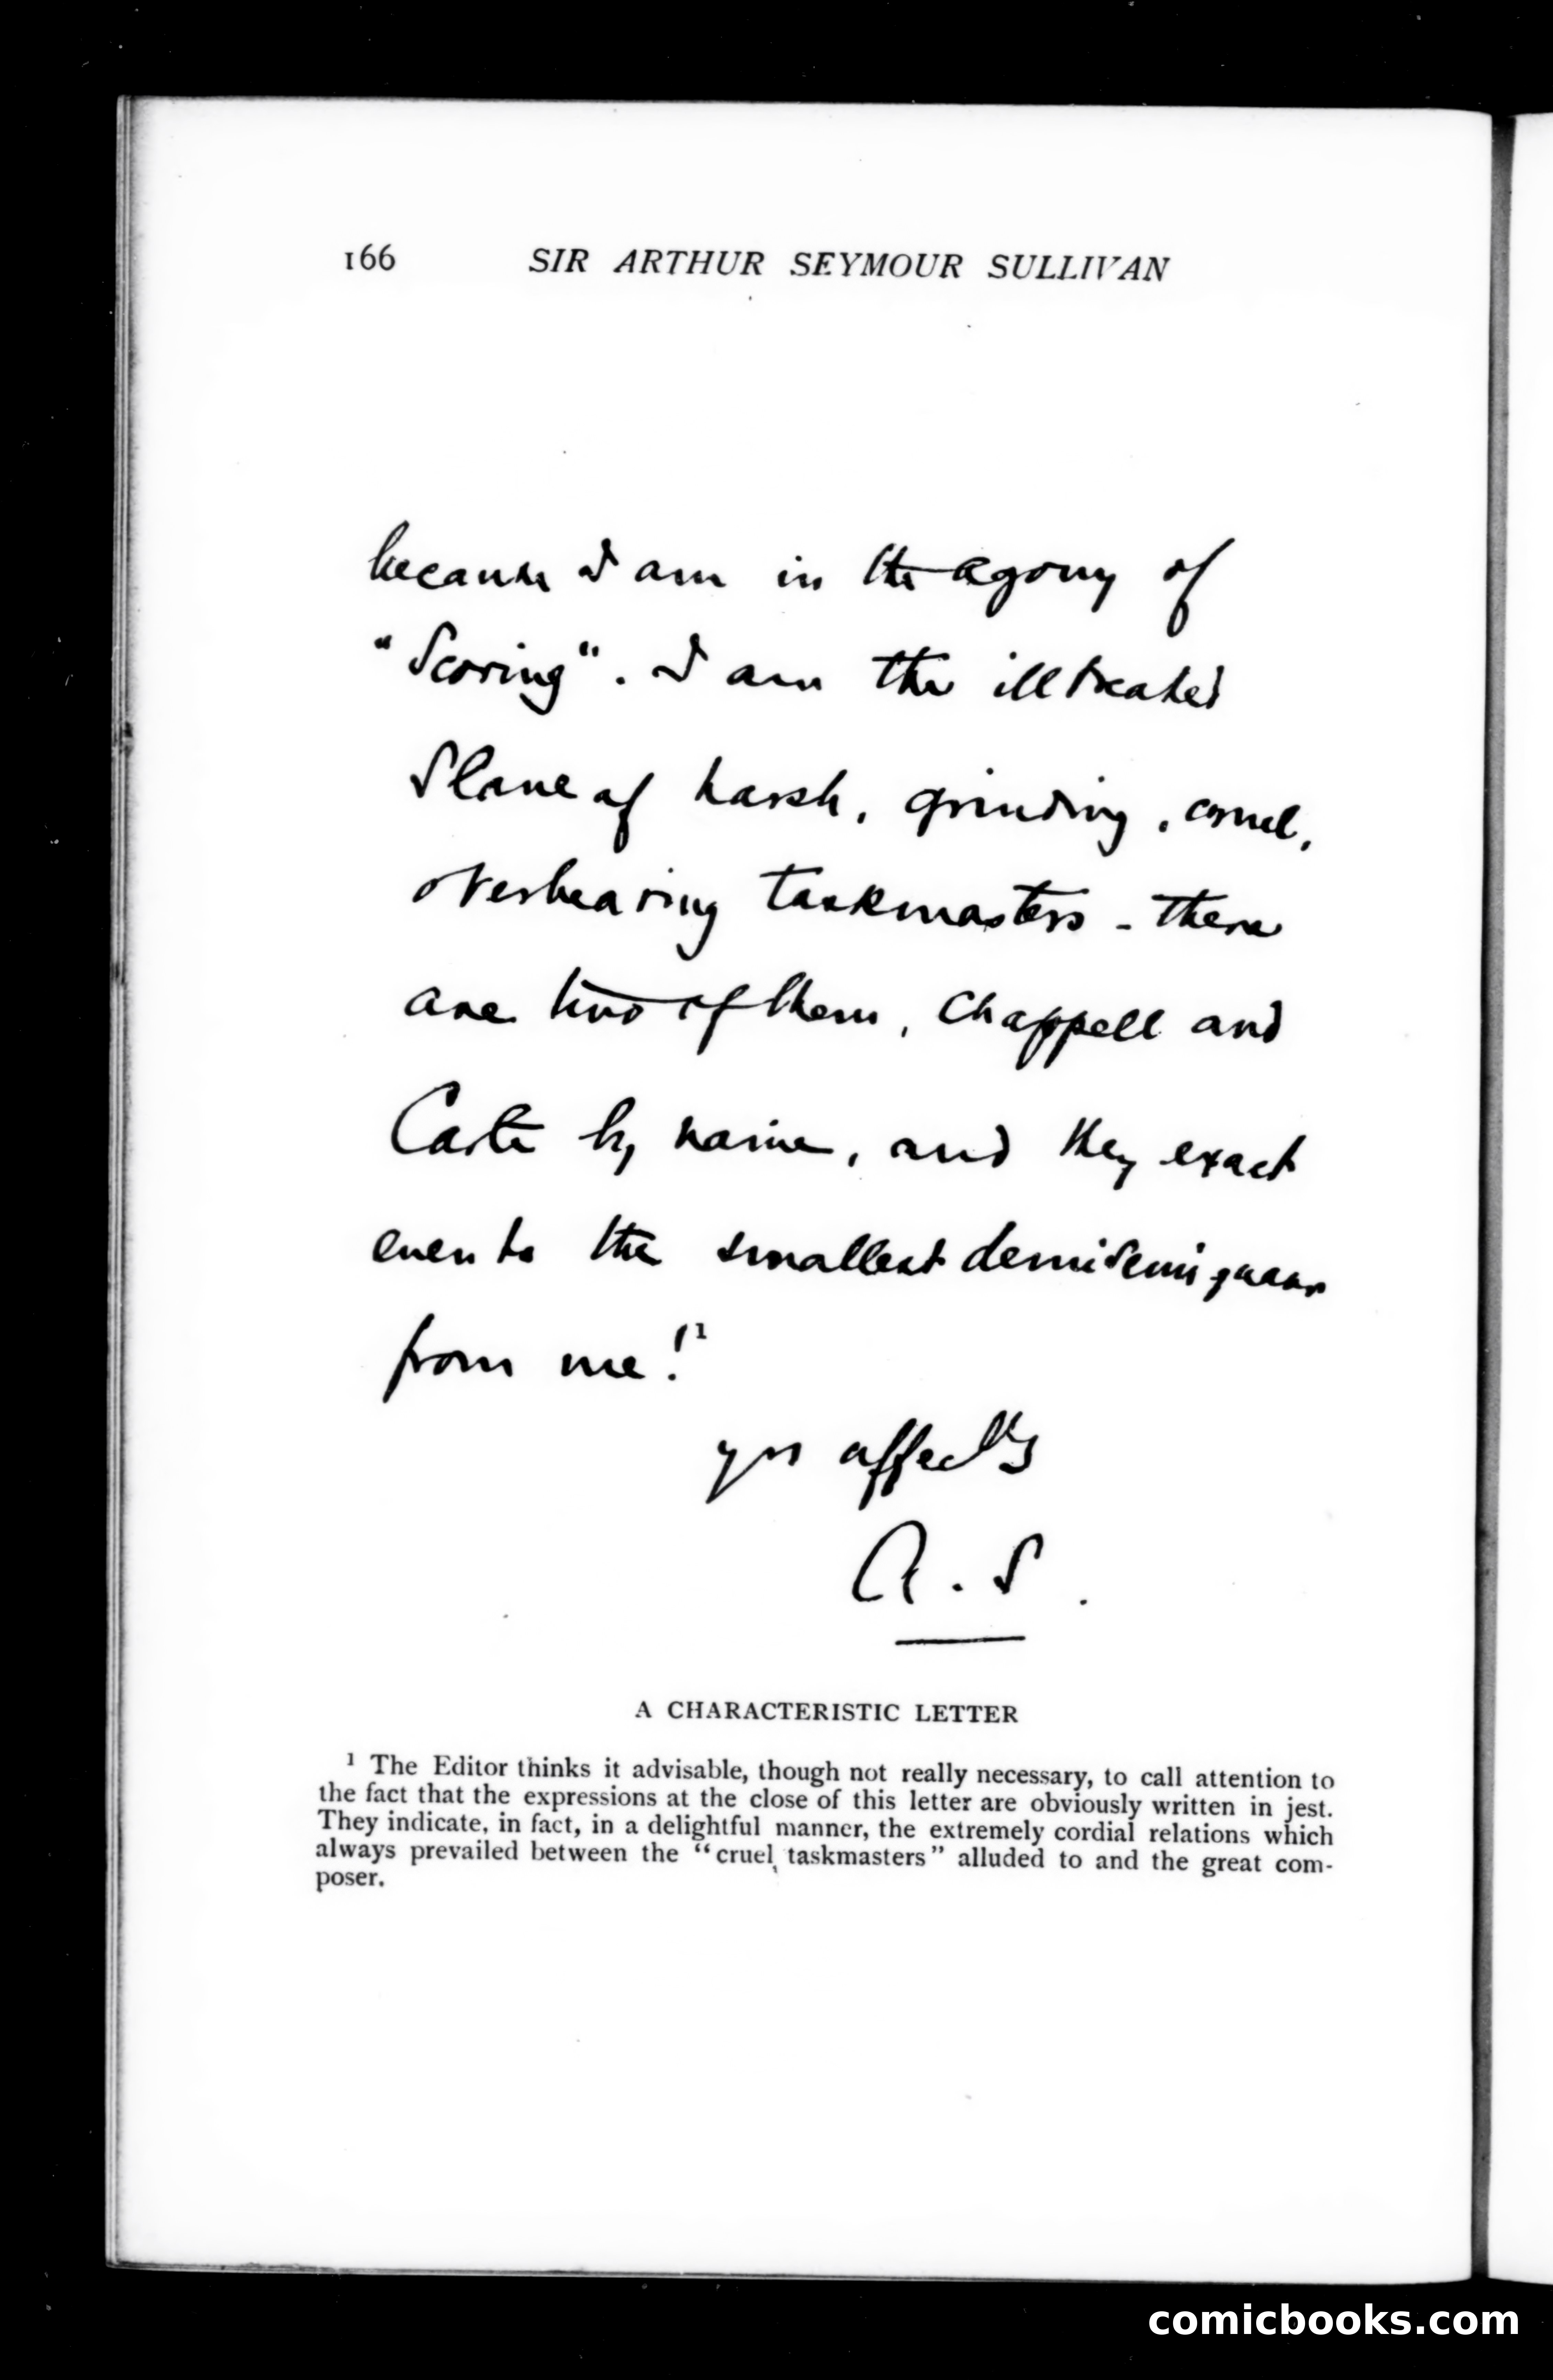 166 SIR ARTHUR SEYMOUR SULLIVAN
because I am in the agony of
"Scoring". I am the illtreated
Slave of harsh, grinding, cruel,
overbearing taskmasters - there
are two of them, Chappell and
Carte by name, and they exact
even to the smallest demisemiquaver
from me!¹
yrs affectly
A.S.
A CHARACTERISTIC LETTER
¹ The Editor thinks it advisable, though not really necessary, to call attention to
the fact that the expressions at the close of this letter are obviously written in jest.
They indicate, in fact, in a delightful manner, the extremely cordial relations which
always prevailed between the "cruel taskmasters" alluded to and the great com-
poser.
comicbooks.com